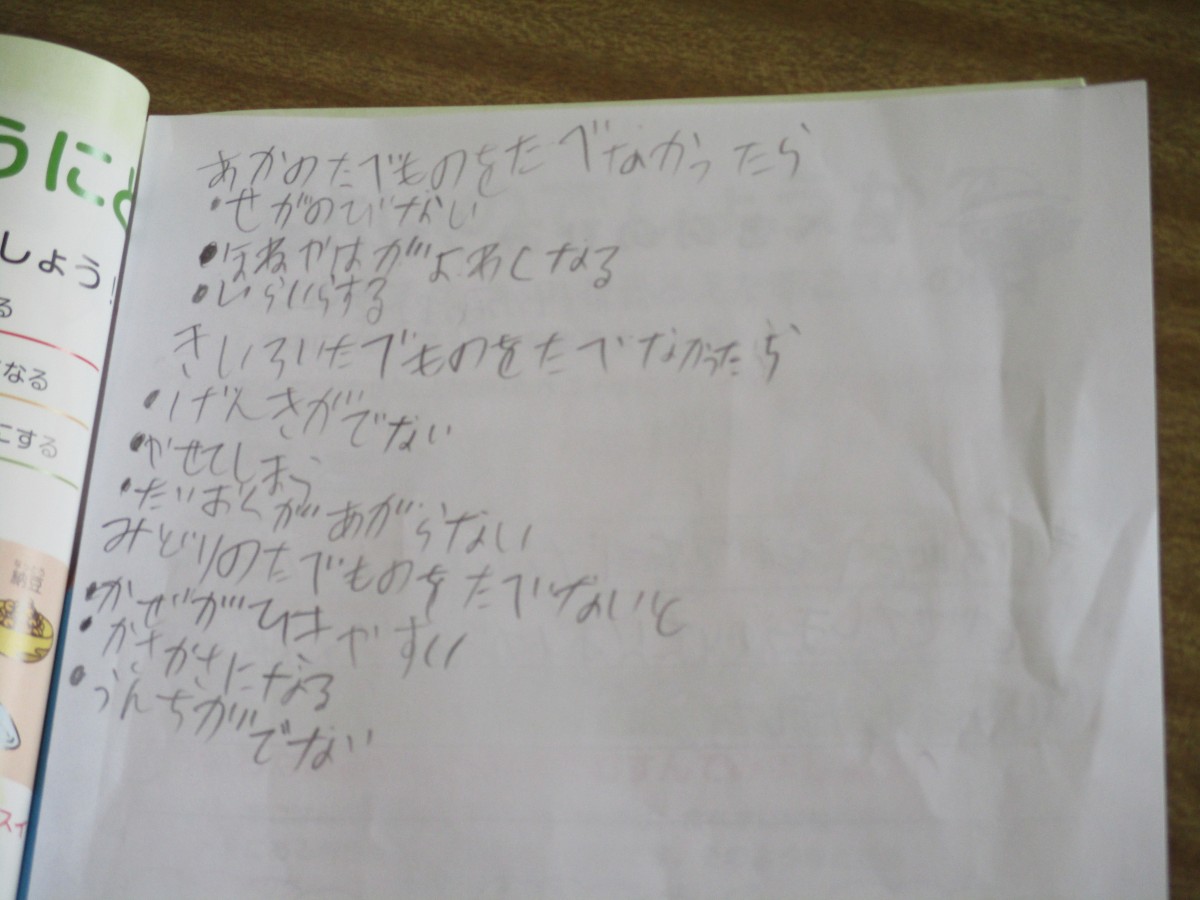 うにと
しょう!
る
なる
にする
納豆
スイ
あかのたべものをたべなかったら
・せがのびない
・ほねやはがよわくなる
・いらいらする
きいろいたべものをたべなかったら
・げんきがでない
・やせてしまう
・たいおんがあがらない
みどりのたべものをたべないと
・かぜがひきやすい
・かさかさになる
・うんちがでない